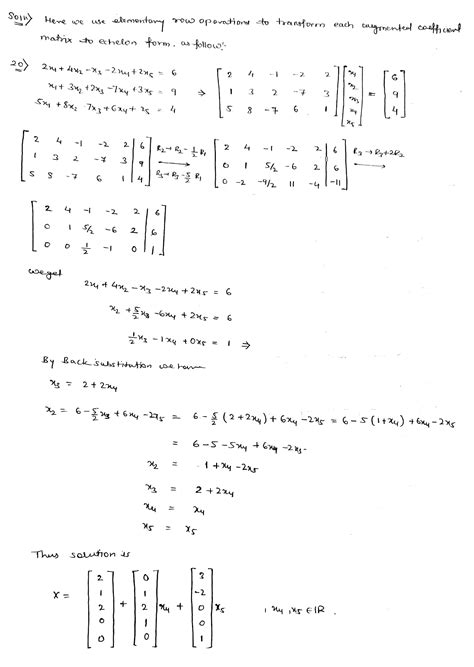 Soln) Here we use elementary row operations to transform each augmented coefficient
matrix to echelon form. as follow:-
20) 2x₁ + 4x₂ - x₃ - 2x₄ + 2x₅ = 6
x₁ + 3x₂ + 2x₃ - 7x₄ + 3x₅ = 9
5x₁ + 8x₂ - 7x₃ + 6x₄ + x₅ = 4
⇒ [2 4 -1 -2 2; 1 3 2 -7 3; 5 8 -7 6 1] [x₁; x₂; x₃; x₄; x₅] = [6; 9; 4]
[2 4 -1 -2 2 | 6; 1 3 2 -7 3 | 9; 5 8 -7 6 1 | 4] R₂→R₂-½R₁ R₃→R₃-5/2 R₁ → [2 4 -1 -2 2 | 6; 0 1 5/2 -6 2 | 6; 0 -2 -9/2 11 -4 | -11] R₃→R₃+2R₂ →
[2 4 -1 -2 2 | 6; 0 1 5/2 -6 2 | 6; 0 0 1/2 -1 0 | 1]
we get
2x₁ + 4x₂ - x₃ - 2x₄ + 2x₅ = 6
x₂ + 5/2 x₃ - 6x₄ + 2x₅ = 6
1/2 x₃ - 1x₄ + 0x₅ = 1 ⇒
By Back substitution we have
x₃ = 2 + 2x₄
x₂ = 6 - 5/2 x₃ + 6x₄ - 2x₅ = 6 - 5/2 (2 + 2x₄) + 6x₄ - 2x₅ = 6 - 5(1 + x₄) + 6x₄ - 2x₅
= 6 - 5 - 5x₄ + 6x₄ - 2x₅.
x₂ = 1 + x₄ - 2x₅
x₃ = 2 + 2x₄
x₄ = x₄
x₅ = x₅
Thus solution is
X = [2; 1; 2; 0; 0] + [0; 1; 2; 1; 0] x₄ + [3; -2; 0; 0; 1] x₅ , x₄, x₅ ∈ ℝ.